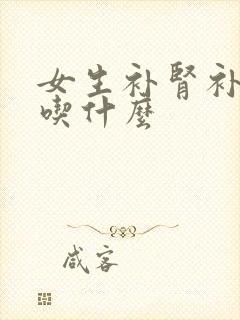 女生补肾补
喫什麼
咸客